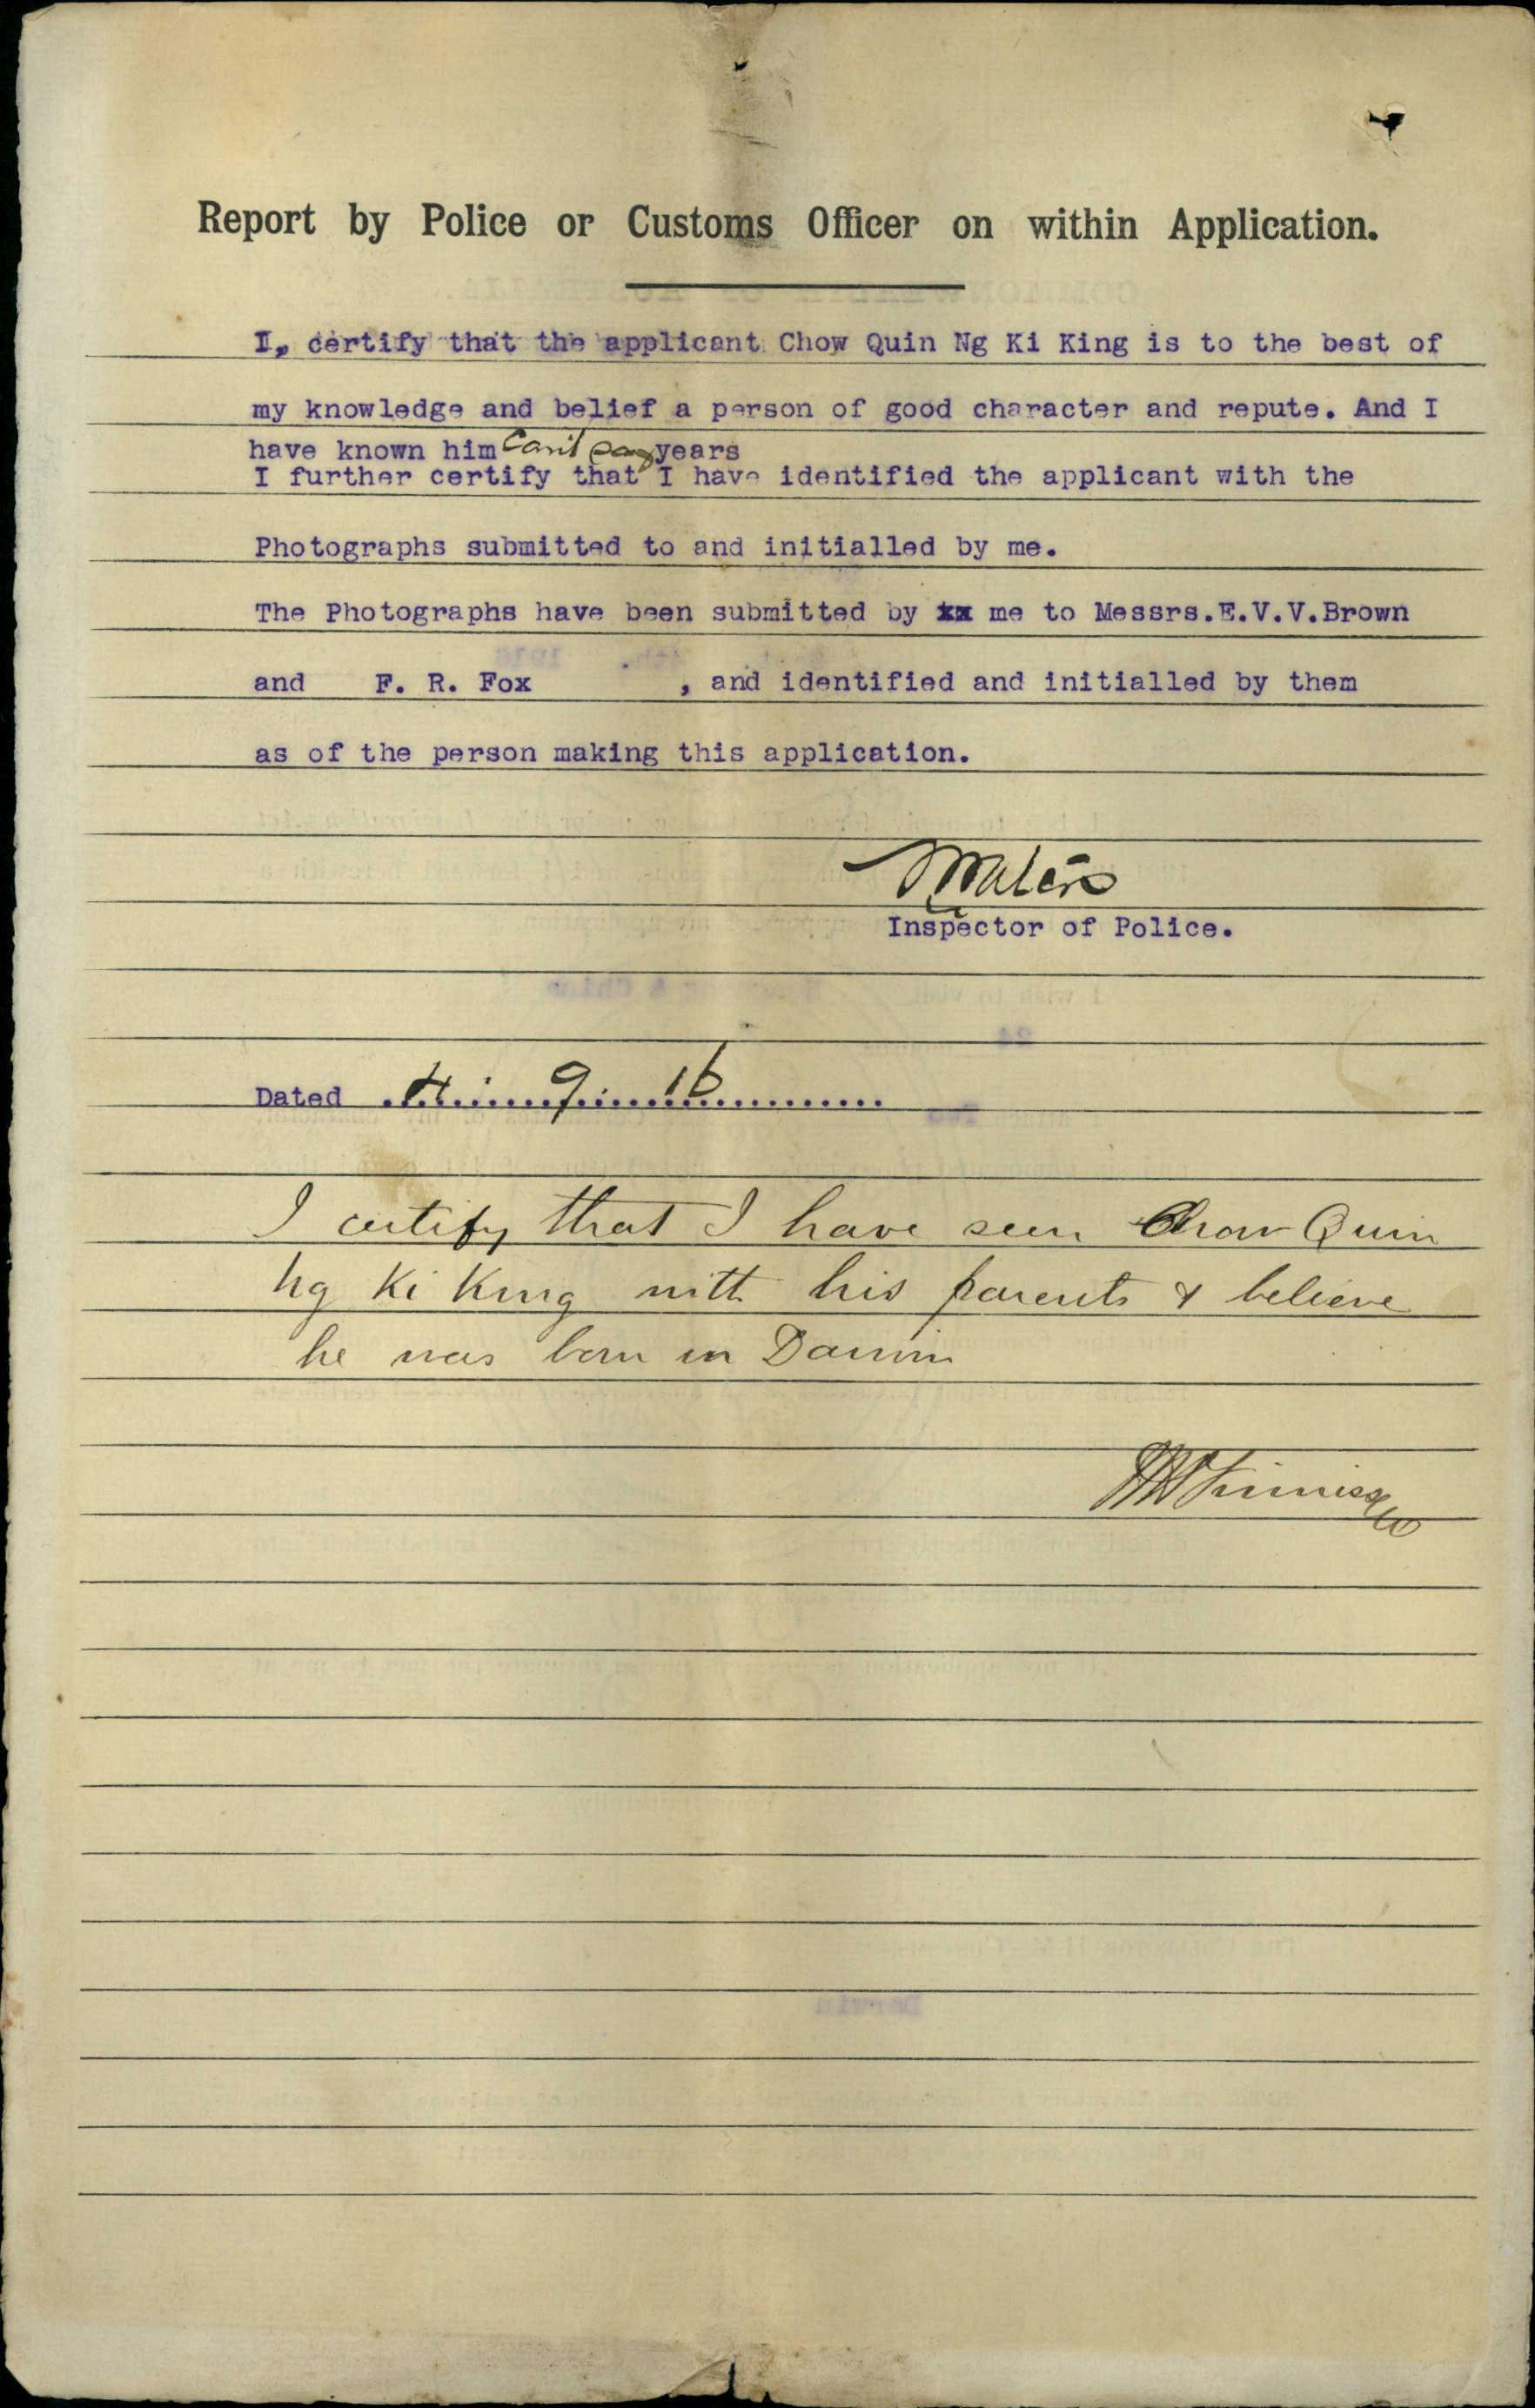 Report by Police or Customs Officer on within Application.
I, certify that the applicant Chow Quin Ng Ki King is to the best of
my knowledge and belief a person of good character and repute. And I
have known him can't say years
I further certify that I have identified the applicant with the
Photographs submitted to and initialled by me.
The Photographs have been submitted by xx me to Messrs.E.V.V.Brown
and F. R. Fox , and identified and initialled by them
as of the person making this application.
Waters
Inspector of Police.
Dated 4 . 9 . 16
I certify that I have seen Chow Quin
Ng Ki King with his parents & believe
he was born in Darwin